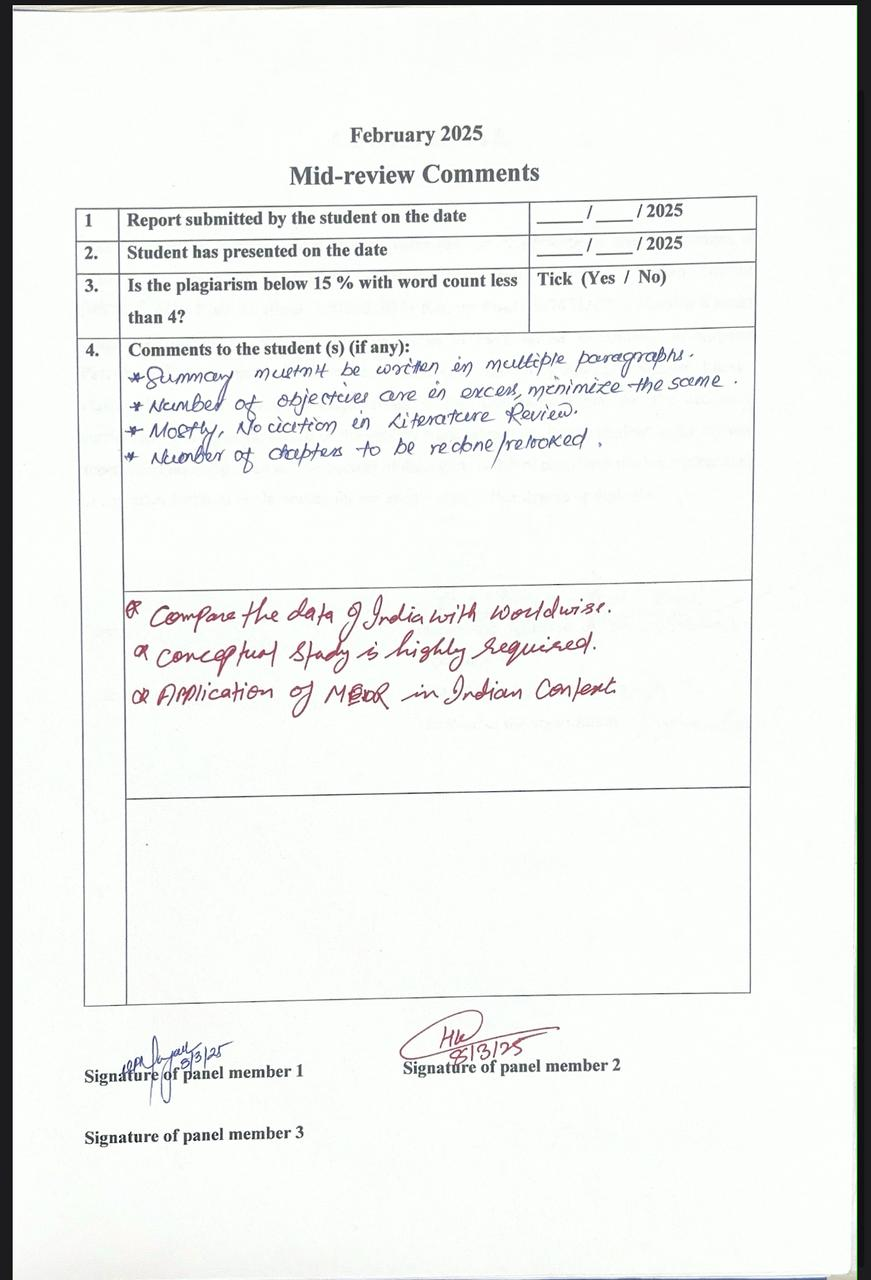 February 2025
Mid-review Comments
1 Report submitted by the student on the date ____ / ____ / 2025
2. Student has presented on the date ____ / ____ / 2025
3. Is the plagiarism below 15 % with word count less than 4? Tick (Yes / No)
4. Comments to the student (s) (if any):
* Summary mustn't be written in multiple paragraphs.
* Number of objectives are in excess, minimize the same.
* Mostly, No citation in Literature Review.
* Number of chapters to be redone/relooked.
* Compare the data of India with worldwise.
* conceptual study is highly required.
* Application of in Indian Context.
8/3/25
Signature of panel member 1
8/3/25
Signature of panel member 2
Signature of panel member 3